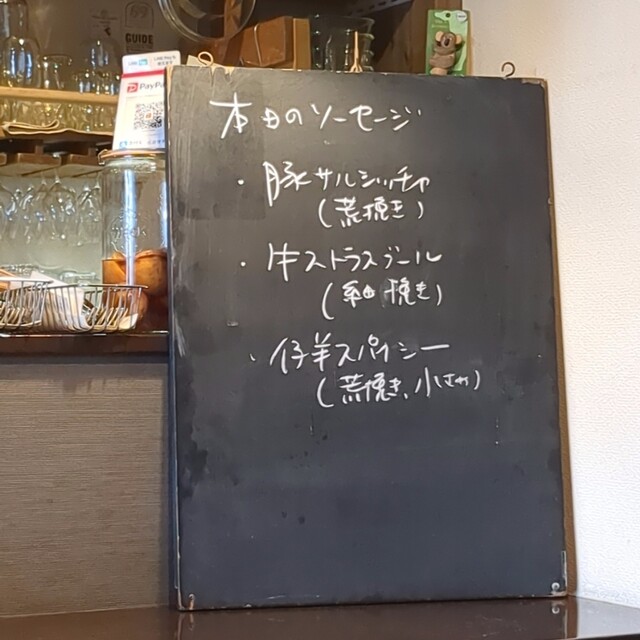 GUIDE
PayPay
本日のソーセージ
・豚サルシッチャ
(荒挽き)
・牛ストラスブール
(細挽き)
・仔羊スパイシー
(荒挽き、小さめ)